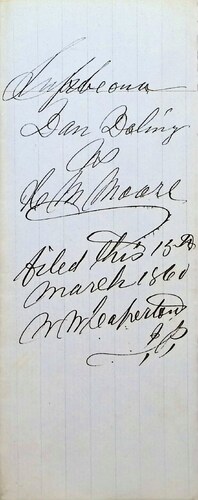 Supbeona
Dan Doling
vs
L M Moore
filed this 15th
March 1860
W W Leaperton
J,P,